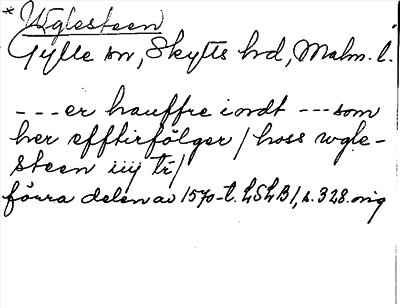 * Uglesteen
Gylle sn, Skytts hd, Malm. l.
--- er hauffre i ordt --- som
her efftirfölger / hoss wgle-
steen iiij tr /
förra delen av 1570-t. LSLB 1, s. 328. orig